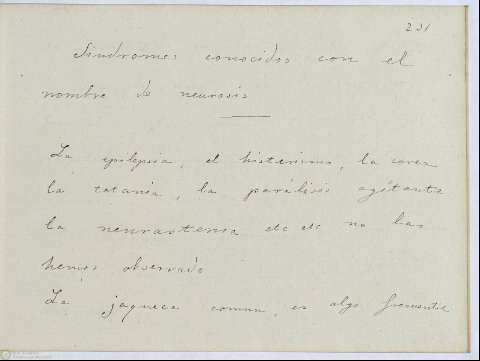 231
Sindromes conocidos con el
nombre de neurosis
La epilepsia, el histerismo, la corea
la tetania, la parálisis agitante
la neurastenia etc etc no las
hemos observado
La jaqueca comun, es algo frecuente